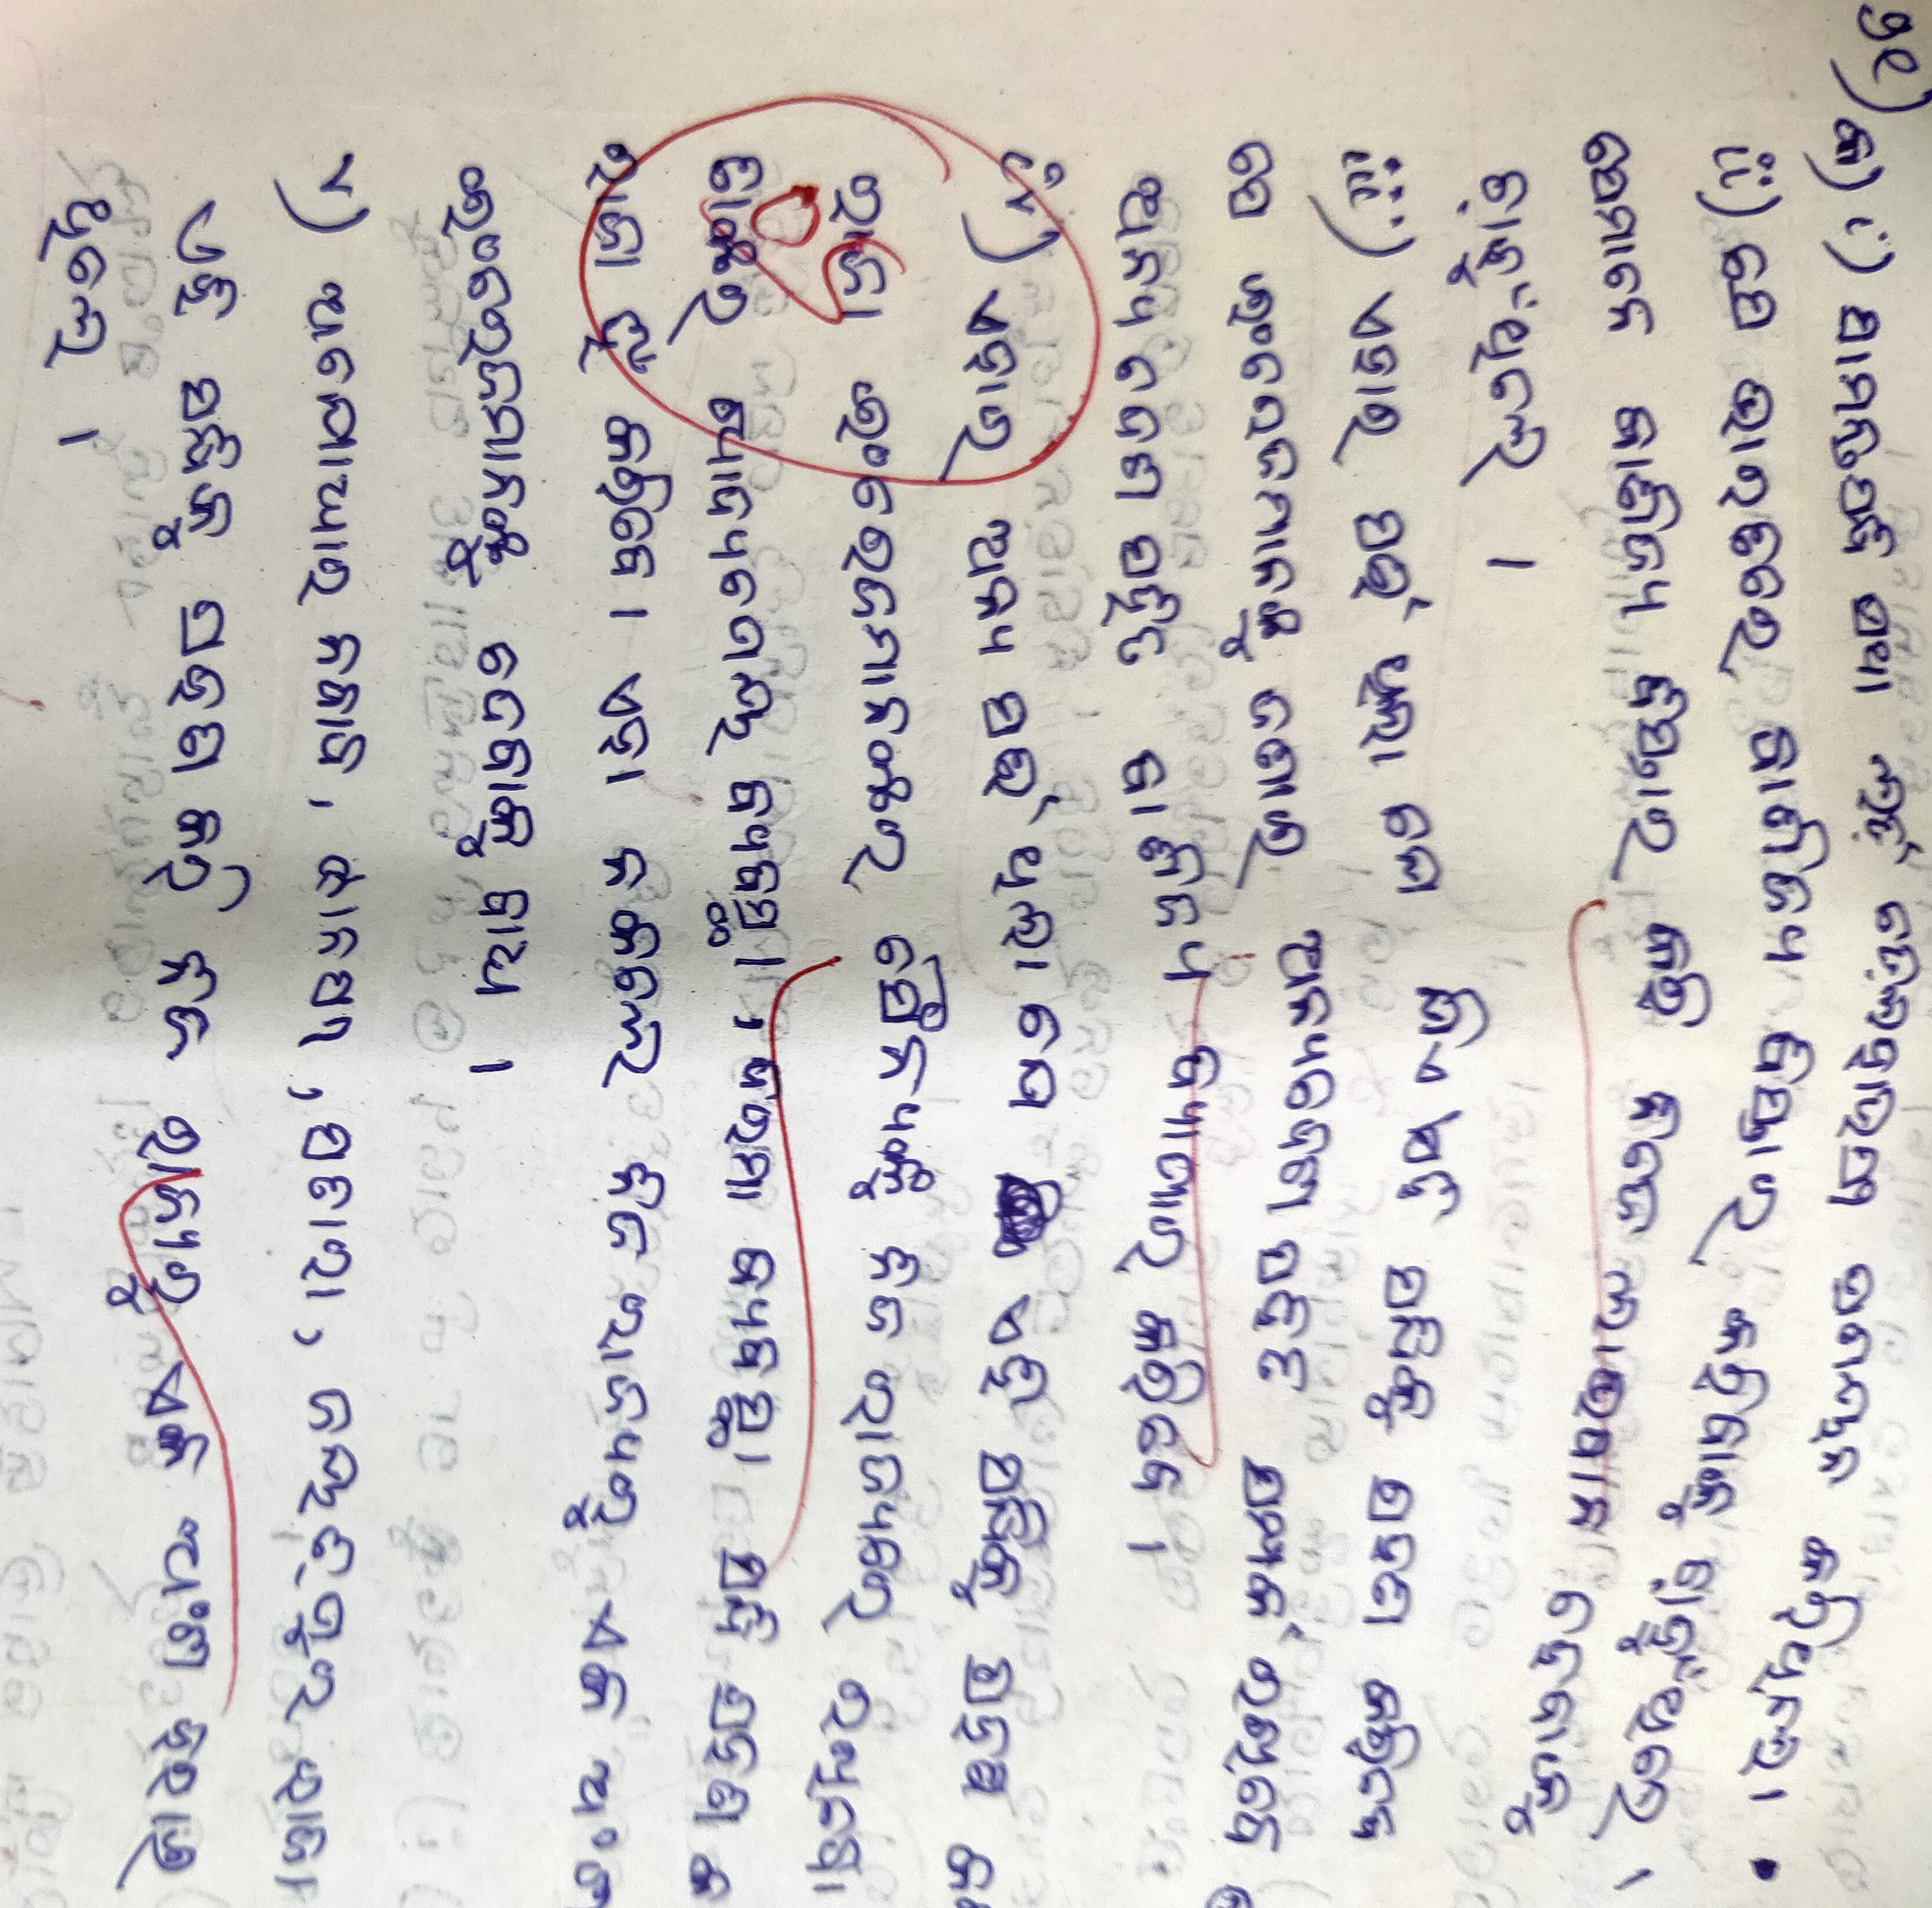 ୨୧) କ) i) ସାମନ୍ତସନ୍ଧି ପ୍ରଥା ଲର୍ଡ଼ ଡ଼େଲହାଉସୀ ପ୍ରଣୟନ କରିଥିଲେ।
ii) ସେ ଭାରତରେ ବାଣିଜ୍ୟ ବିସ୍ତାର କରିବାକୁ ଚ଼ାହୁଁଥିଲେ ।
ସେମାନେ ବାଣିଜ୍ୟ ବିସ୍ତାର କରି ନିଜେ ଲାଭବାନ ହେବାକୁ
ଚ଼ାହୁଁଥିଲେ ।
iii) ଏହାର ସର୍ତ୍ତ ଥିଲା ଯେ କିଏ ଯଦି ସନ୍ଧିକୁ ଗ୍ରହଣ କରିବେ
ସେ ଇଂରେଜମାନଙ୍କୁ ଜଣାଇ ଅନ୍ୟଦେଶ ସହିତ ସମ୍ପର୍କ ରଖିବେ
ଅନ୍ୟ ଦେଶ ସହିତ ବାଣିଜ୍ୟ ବ୍ୟାପାର କରିବେ ।
iv) ଏହାର ଅନ୍ୟ ସର୍ତ୍ତ ଥିଲା ଯେ ଏହି ସନ୍ଧିକୁ ଗ୍ରହଣ
ରାଜା ଇଂରେଜମାନଙ୍କର ସୈନ୍ୟଙ୍କୁ ନିଜ ରାଜ୍ୟରେ ରଖିବେ।
ତାଙ୍କର ଖାଦ୍ୟପେୟ ବ୍ୟବସ୍ଥା , ଦରମା ବ୍ୟବସ୍ଥା ସନ୍ଧି ଗ୍ରହଣ
ରାଜା ହିଁ କରିବେ। ଏହା ନ କଲେ ନିଜ ରାଜ୍ୟରୁ ଏକ ଅଂଶ
ଇଂରେଜମାନଙ୍କୁ ଦେବାକୁ ବାଧ୍ୟ ।
v) ଅଯୋଧ୍ୟାର ନବାବ, ଝାନସୀ, ସତାରା, ଜୟତ଼ପୁର ରାଜା
ଏହି ସନ୍ଧିକୁ ଗ୍ରହଣ କରି ନିଜ ରାଜ୍ୟରୁ ଏକ ଅଂଶ ହରାଇ
ଥିଲେ ।